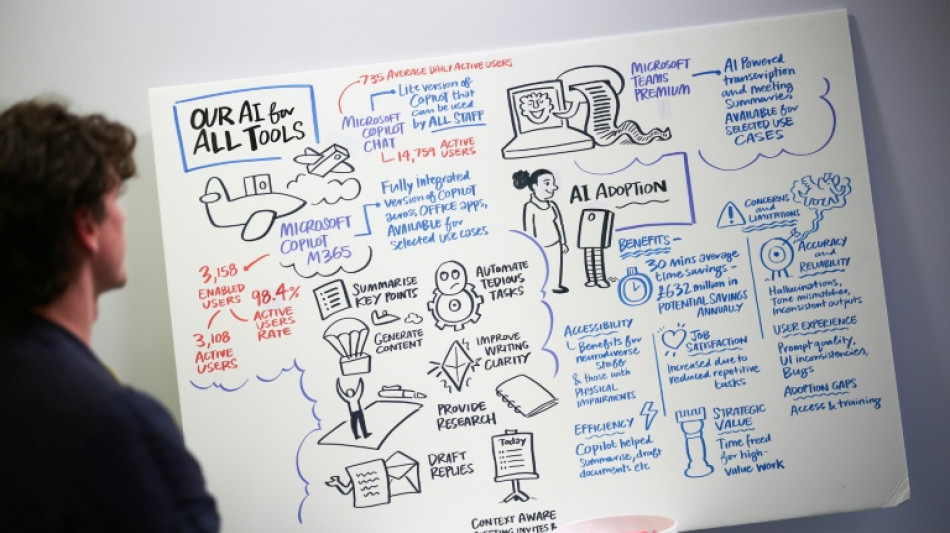 OUR AI for
ALL TOOLS
735 AVERAGE DAILY ACTIVE USERS
MICROSOFT
COPILOT
CHAT
Lite version of
COPILOT that
can be used
by ALL STAFF
14,759 ACTIVE
USERS
MICROSOFT
COPILOT
M365
Fully integrated
version of COPILOT
across OFFICE apps,
AVAILABLE for
selected use cases
3,158
ENABLED
USERS
98.4%
ACTIVE
USERS
RATE
3,108
ACTIVE
USERS
SUMMARISE
KEY POINTS
AUTOMATE
TEDIOUS
TASKS
GENERATE
CONTENT
IMPROVE
WRITING
CLARITY
PROVIDE
RESEARCH
DRAFT
REPLIES
Today
CONTEXT AWARE
MEETING INVITES &
MICROSOFT
TEAMS
PREMIUM
AI POWERED
transcription
and meeting
summaries,
AVAILABLE for
SELECTED USE
CASES
AI ADOPTION
BENEFITS
30 mins average
time savings -
£632 million in
POTENTIAL SAVINGS
ANNUALLY
ACCESSIBILITY
Benefits for
neurodiverse
staff
& those with
PHYSICAL
IMPAIRMENTS
JOB
SATISFACTION
Increased due to
reduced repetitive
tasks
EFFICIENCY
Copilot helped
summarise, draft
documents etc
STRATEGIC
VALUE
Time freed
for high-
value work
CONCERNS
and
LIMITATIONS
ACCURACY
and
RELIABILITY
Hallucinations,
Tone mismatches,
Inconsistent outputs
USER EXPERIENCE
Prompt quality,
UI inconsistencies,
Bugs
ADOPTION GAPS
Access & training